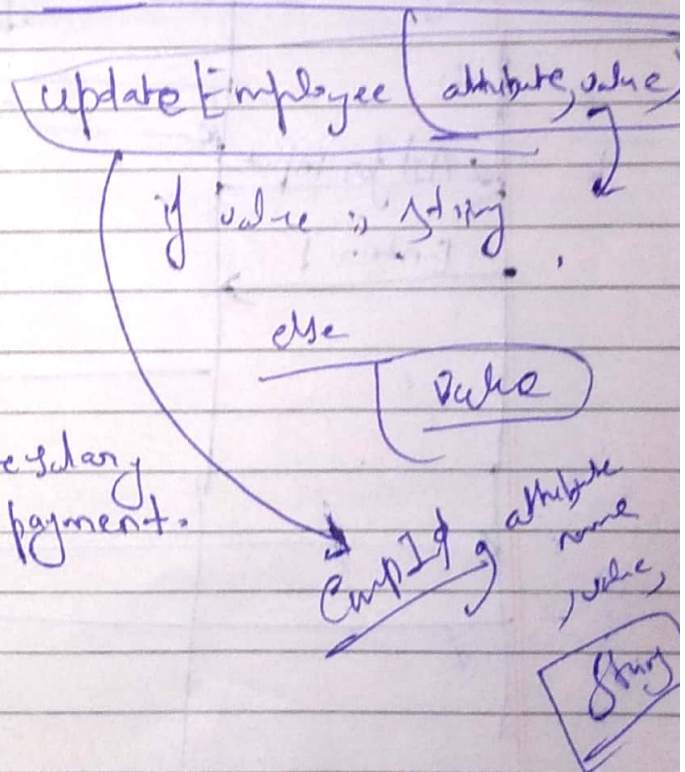 updateEmployee (attribute, value)
if value is string
else
value
e salary
payment.
EmpId, attribute
name
, value,
String